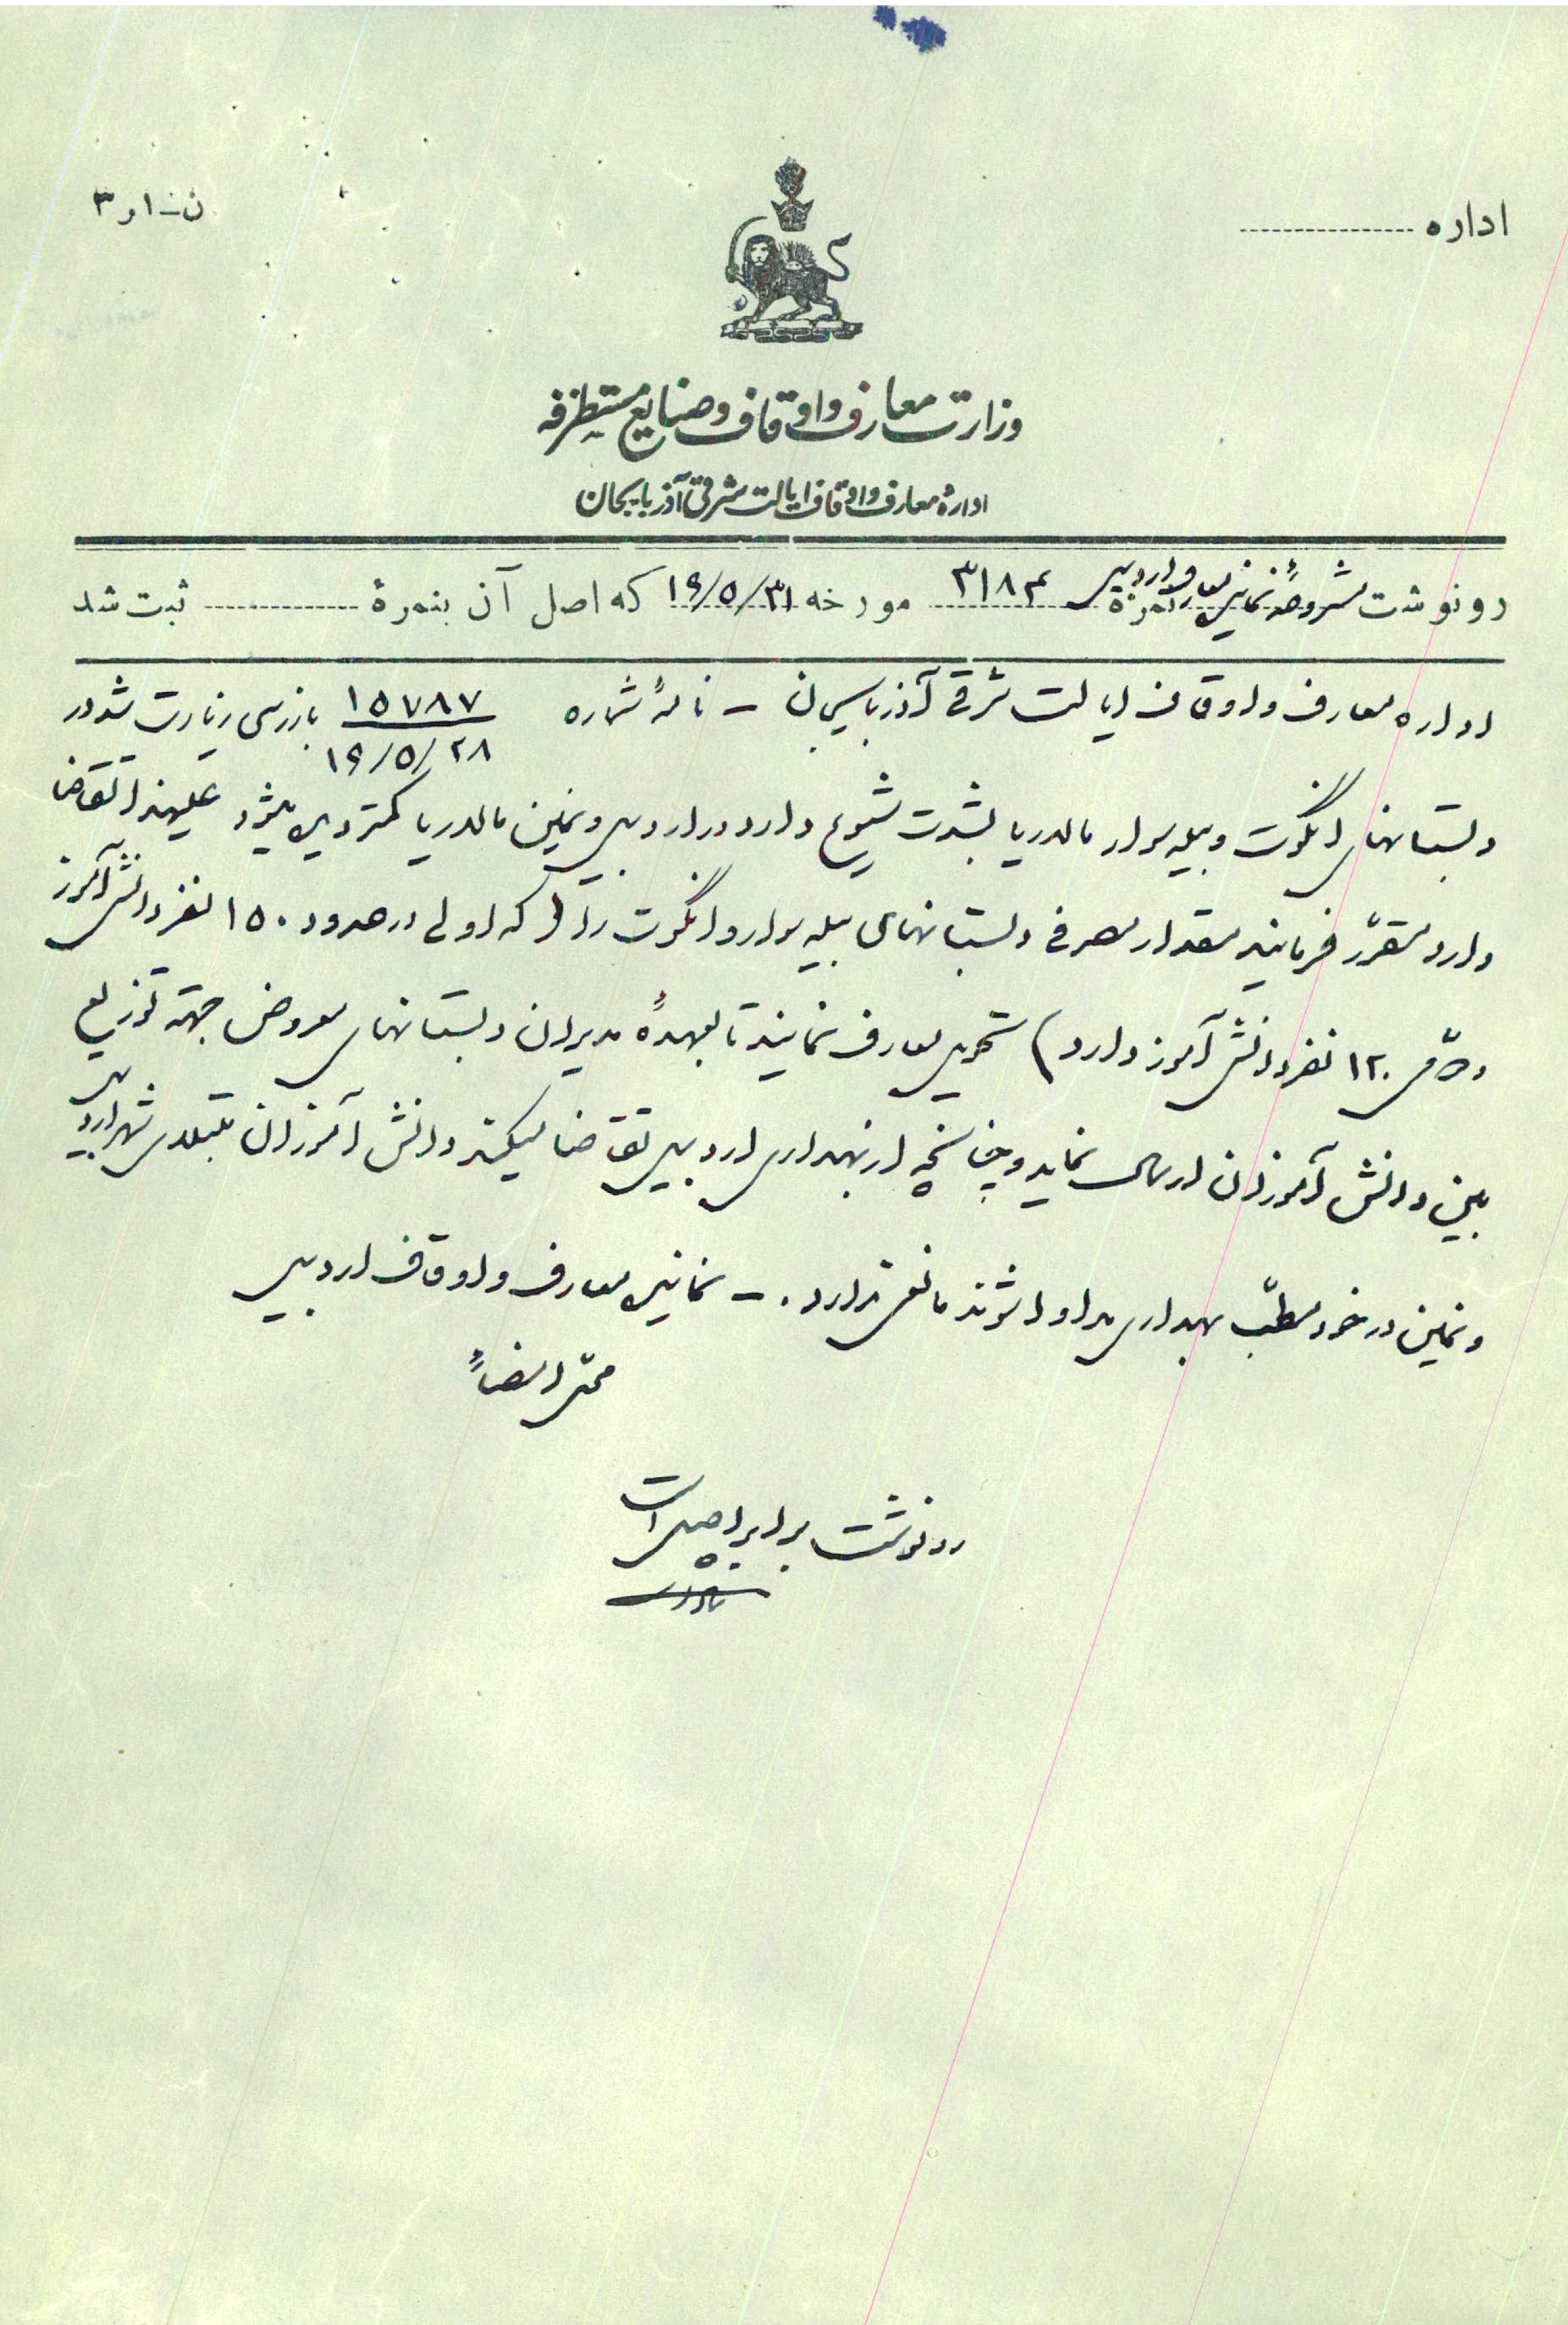 اداره
ن-۱ر۳
وزارت معارف و اوقاف و صنایع مستظرفه
ادارهٔ معارف و اوقاف ایالت شرقی آذربایجان
رونوشت مشروحهٔ نمایندگی معارف اردبیل نمرهٔ ۳۱۸۳ مورخه ۱۶/۵/۳۱ که اصل آن بنمرهٔ ثبت شد
اداره معارف و اوقاف ایالت شرقی آذربایجان - نامهٔ شماره ۱۵۷۸۷ بازرسی زیارت شد در
۱۶/۵/۲۸
دبستانهای انگوت و بیله سوار مالاریا بشدت شیوع دارد در اردبیل و نمین مالاریا کمتر دیده میشود علیهذا تقاضا
دارد مقرّر فرمایند مقدار مصرفی دبستانهای بیله سوار و انگوت را (که اولی در حدود ۱۵۰ نفر دانش آموز
و دومی ۱۲۰ نفر دانش آموز دارد) تحویل معارف نمایند تا بعهدهٔ مدیران دبستانهای معروض جهة توزیع
بین دانش آموزان ارسال نماید و چنانچه از بهداری اردبیل تقاضا میکنند دانش آموزان مبتلای شهر اردبیل
و نمین در خود مطبّ بهداری مداوا شوند مانعی ندارد. - نماینده معارف و اوقاف اردبیل
محل امضاءً
رونوشت برابر اصل است